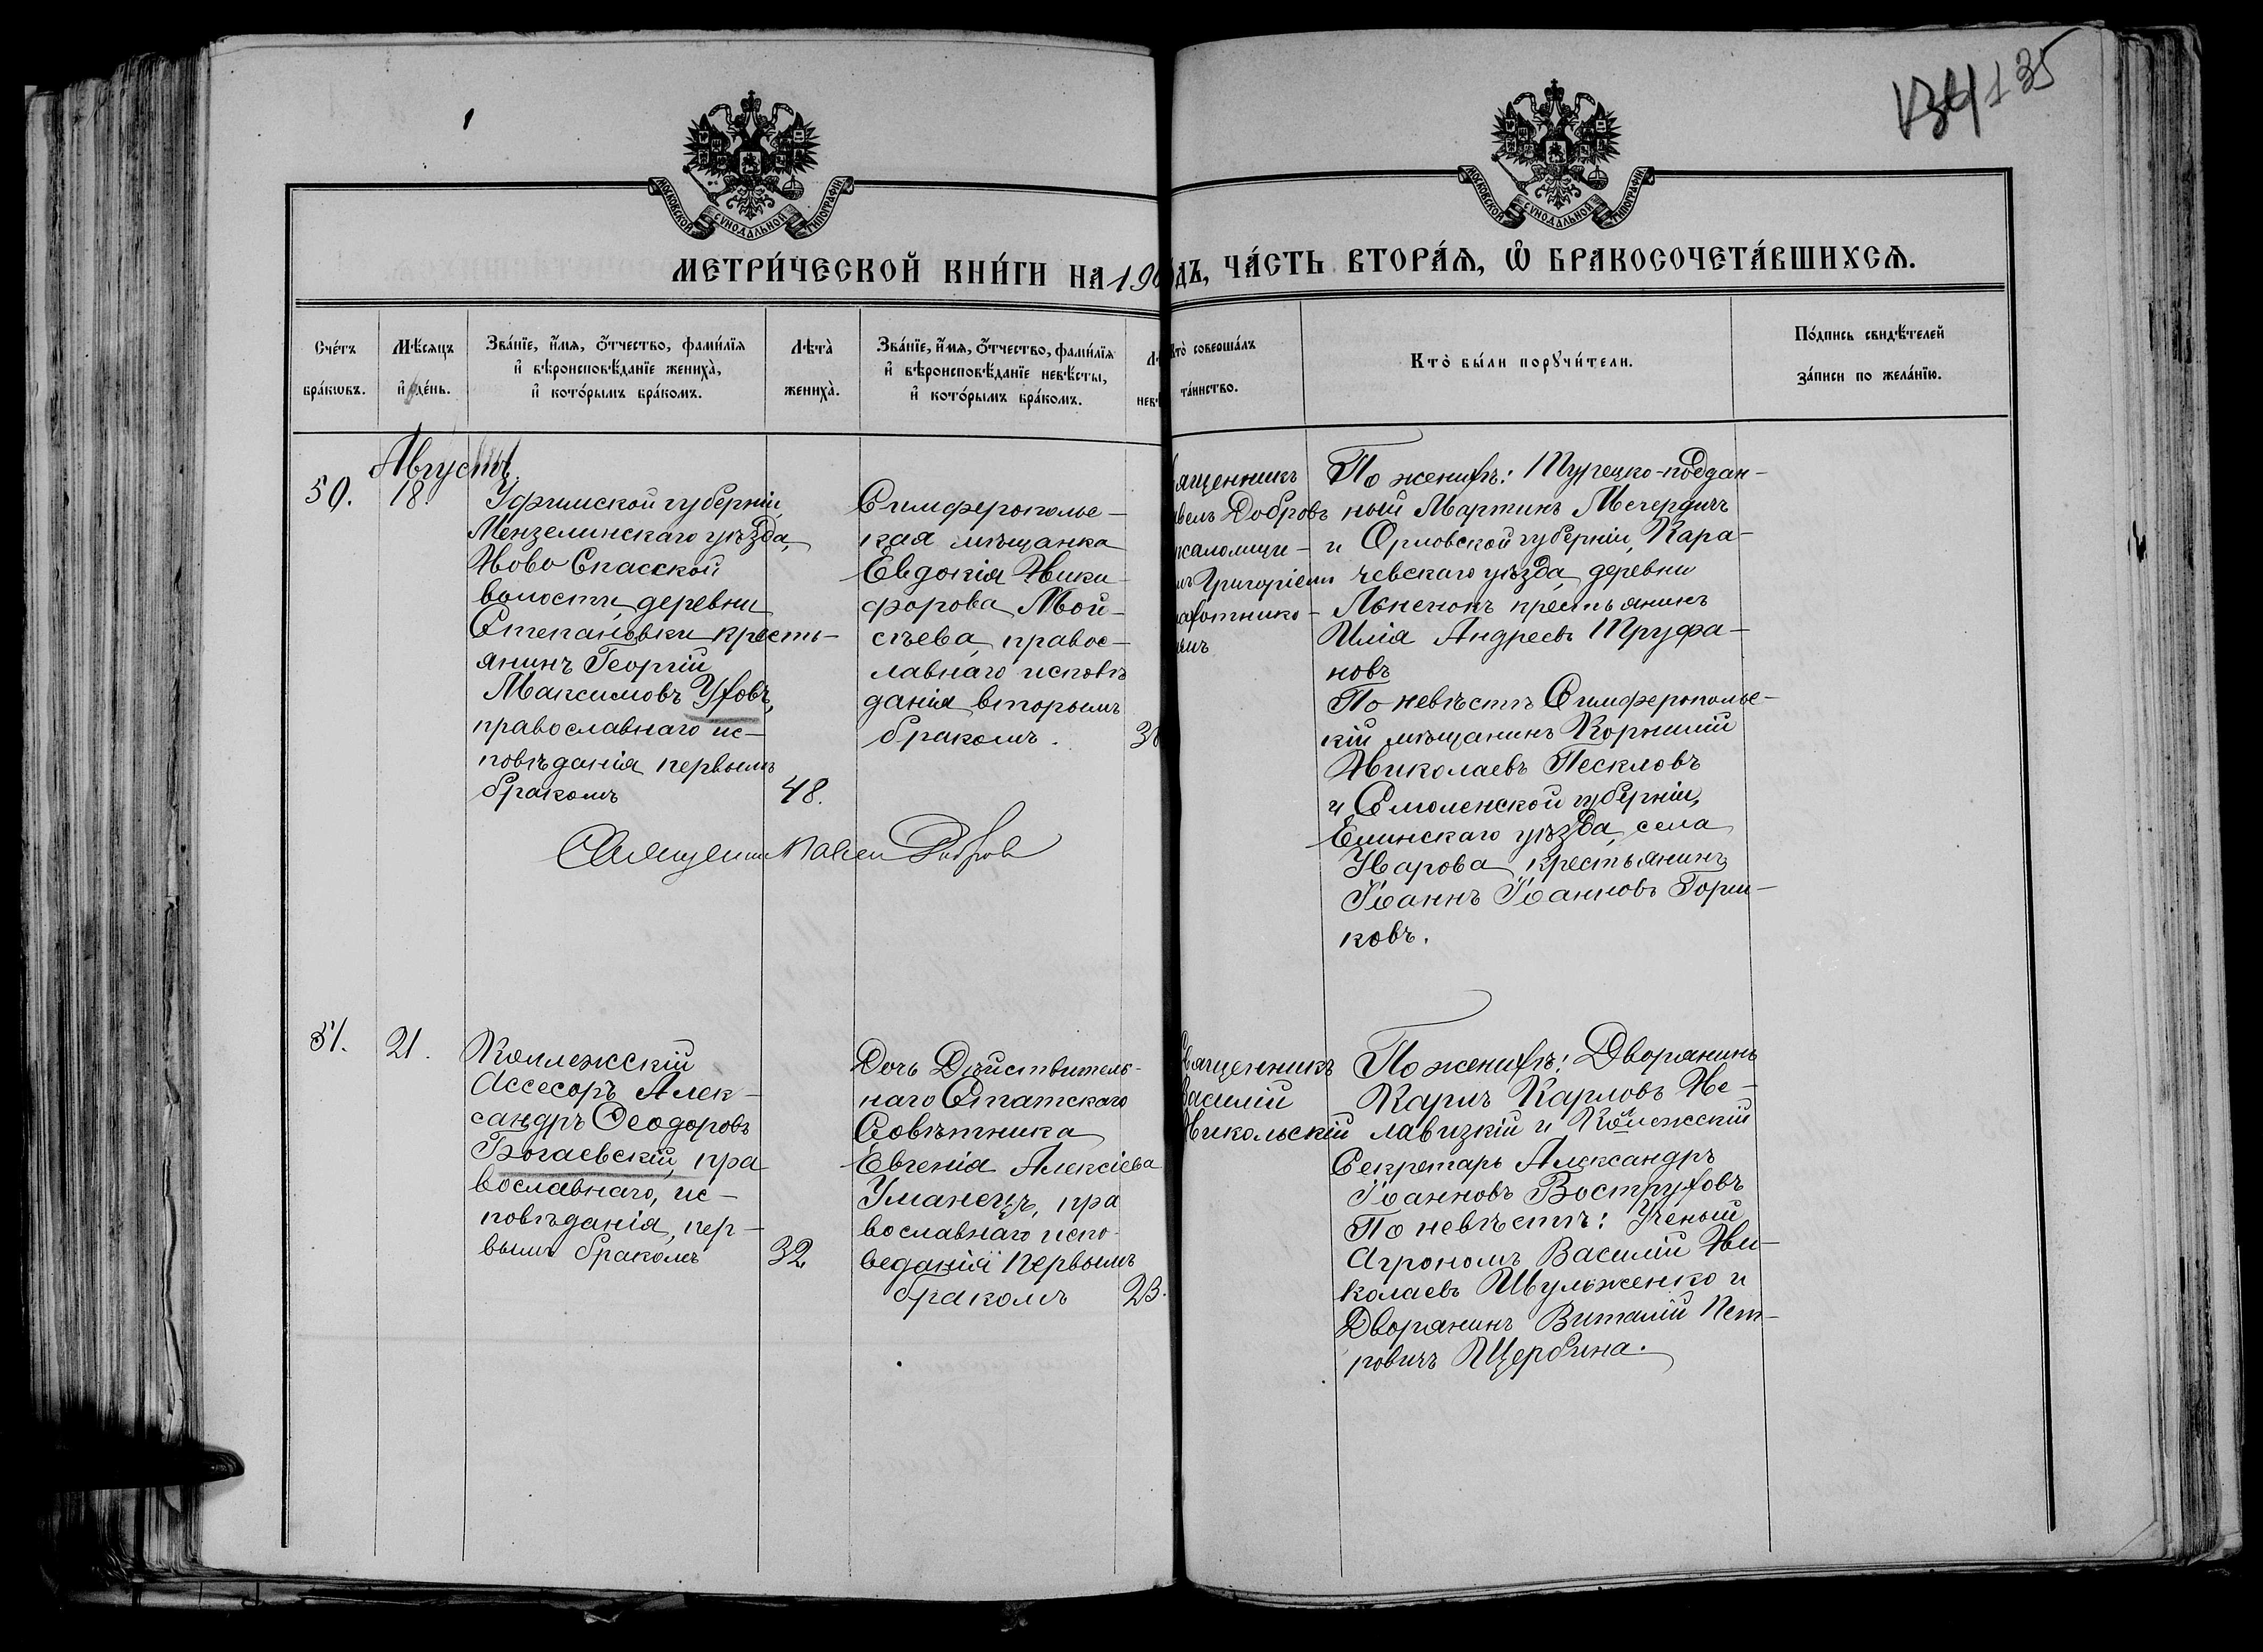 135
МОСКОВСКОЙ СѴНОДАЛЬНОЙ ТИПОГРАФІИ.
МОСКОВСКОЙ СѴНОДАЛЬНОЙ ТИПОГРАФІИ.
МЕТРИ́ЧЕСКОЙ КНИ́ГИ НА 190
ДЪ, ЧА́СТЬ ВТОРА́Я, Ѡ҆ БРАКОСОЧЕТА́ВШИХСЯ.
Сче́тъ
бра́кѡвъ.
Мѣ́сяцъ
и҆ де́нь.
Зва́нїе, и҆́мя, ѻ҆́тчество, фами́лїя
и҆ вѣроисповѣ́данїе жениха̀,
и҆ кото́рымъ бра́комъ.
Лѣта̀
жениха̀.
Зва́нїе, и҆́мя, ѻ҆́тчество, фами́лїя
и҆ вѣроисповѣ́данїе невѣ́сты,
и҆ кото́рымъ бра́комъ.
Кто̀ соверша́лъ
та́инство.
Кто̀ бы́ли порꙋчи́тели.
По́дпись свидѣ́телей
за́писи по жела́нїю.
Августъ
50.
18.
Уфимской губерніи,
Мензелинскаго уѣзда,
Ново Спасской
волости, деревни
Степановки кресть-
янинъ Георгій
Максимовъ Уховъ,
православнаго ис-
повѣданія первымъ
бракомъ
48.
Симферопольс-
кая мѣщанка
Евдокія Ники-
форова Мой-
сѣева, правос-
лавнаго исповѣ
данія вторымъ
бракомъ.
Священникъ Павелъ Добровъ
ященникъ
велъ Добровъ
саломщи-
Григоріемъ
ахотнико-
По женихѣ: Турецко-поддан-
ный Мартинъ Мегердичъ
и Орловской губерніи, Кара-
чевскаго уѣзда, деревни
крестьянинъ
Илія Андреевъ Труфа-
новъ
По невѣстѣ Симферопольс-
кій мѣщанинъ Корнилій
Николаевъ Пескловъ
и Смоленской губерніи,
Елнинскаго уѣзда, села
Уварова крестьянинъ
Іоаннъ Іоанновъ Горш-
ковъ.
51.
21.
Коллежскій
Ассесоръ Алек-
сандръ Ѳеодоровъ
Богаевскій, пра
вославнаго, ис-
повѣданія, пер-
вымъ бракомъ
32
Дочь Дѣйствитель-
наго Статскаго
Совѣтника
Евгенія Алексіева
Уманецъ, пра
вославнаго испо-
веданія первымъ
бракомъ
23.
Священникъ
Василій
Никольскій
По женихѣ: Дворянинъ
Карлъ Карловъ Не-
лавицкій и Коллежскій
Секретарь Александръ
Іоанновъ Воструховъ
По невѣстѣ: Ученый
Агрономъ Василій Ни-
колаевъ Шульженко и
Дворянинъ Виталій Пет-
ровичъ Щербина.